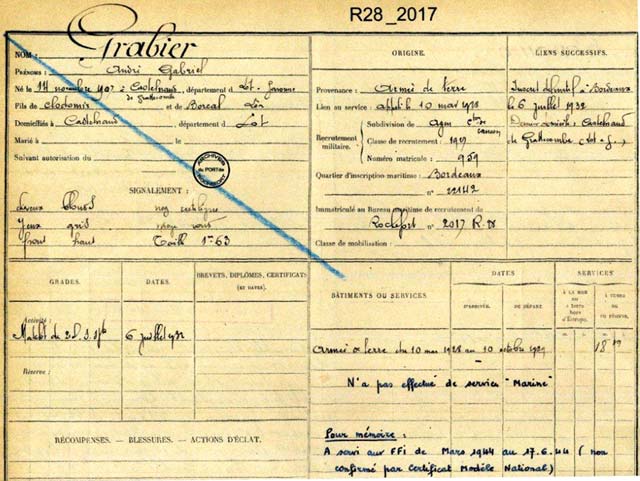 R28_2017
NOM : Grabier
PRÉNOMS : André Gabriel
Né le 14 novembre 1907 à Castelnaud, département d Lot-Garonne
de Grattecambe
Fils de Clodomir et de Boreal
Domiciliés à Castelnaud, département d Lot
Marié à le
Suivant autorisation du
ARCHIVES du PORT de ROCHEFORT
SIGNALEMENT :
cheveux nez rectiligne
Yeux gris visage
front haut Taille 1m63
ORIGINE.
Provenance : Armée de terre
Lien au service : appelé le 10 mai 1928
Recrutement militaire.
Subdivision de Agen
Classe de recrutement : 1927
Numéro matricule : 959
Quartier d'inscription maritime : Bordeaux
n° 22142
Immatriculé au Bureau maritime de recrutement de
Rochefort n° 2017 R.28
Classe de mobilisation :
LIENS SUCCESSIFS.
Inscrit définitif à Bordeaux
le 6 juillet 1932
Castelnaud
de Grattecambe (Lot-G.)
GRADES.
DATES.
BREVETS, DIPLÔMES, CERTIFICATS
(ET DATES).
Activité :
Matelot de 2e 6 juillet 1932
Réserve :
RÉCOMPENSES. — BLESSURES. — ACTIONS D'ÉCLAT.
BÂTIMENTS OU SERVICES.
DATES
D'ARRIVÉE. DE DÉPART.
SERVICES
À LA MER ou à terre hors d'Europe.
À TERRE ou EN RÉSERVE.
Armée de terre du 10 mai 1928 au 10 octobre 1929
N'a pas effectué de services "Marine"
Pour mémoire :
A servi aux FFi de Mars 1944 au 17.6.44 (non
confirmé par Certificat Modèle National.)